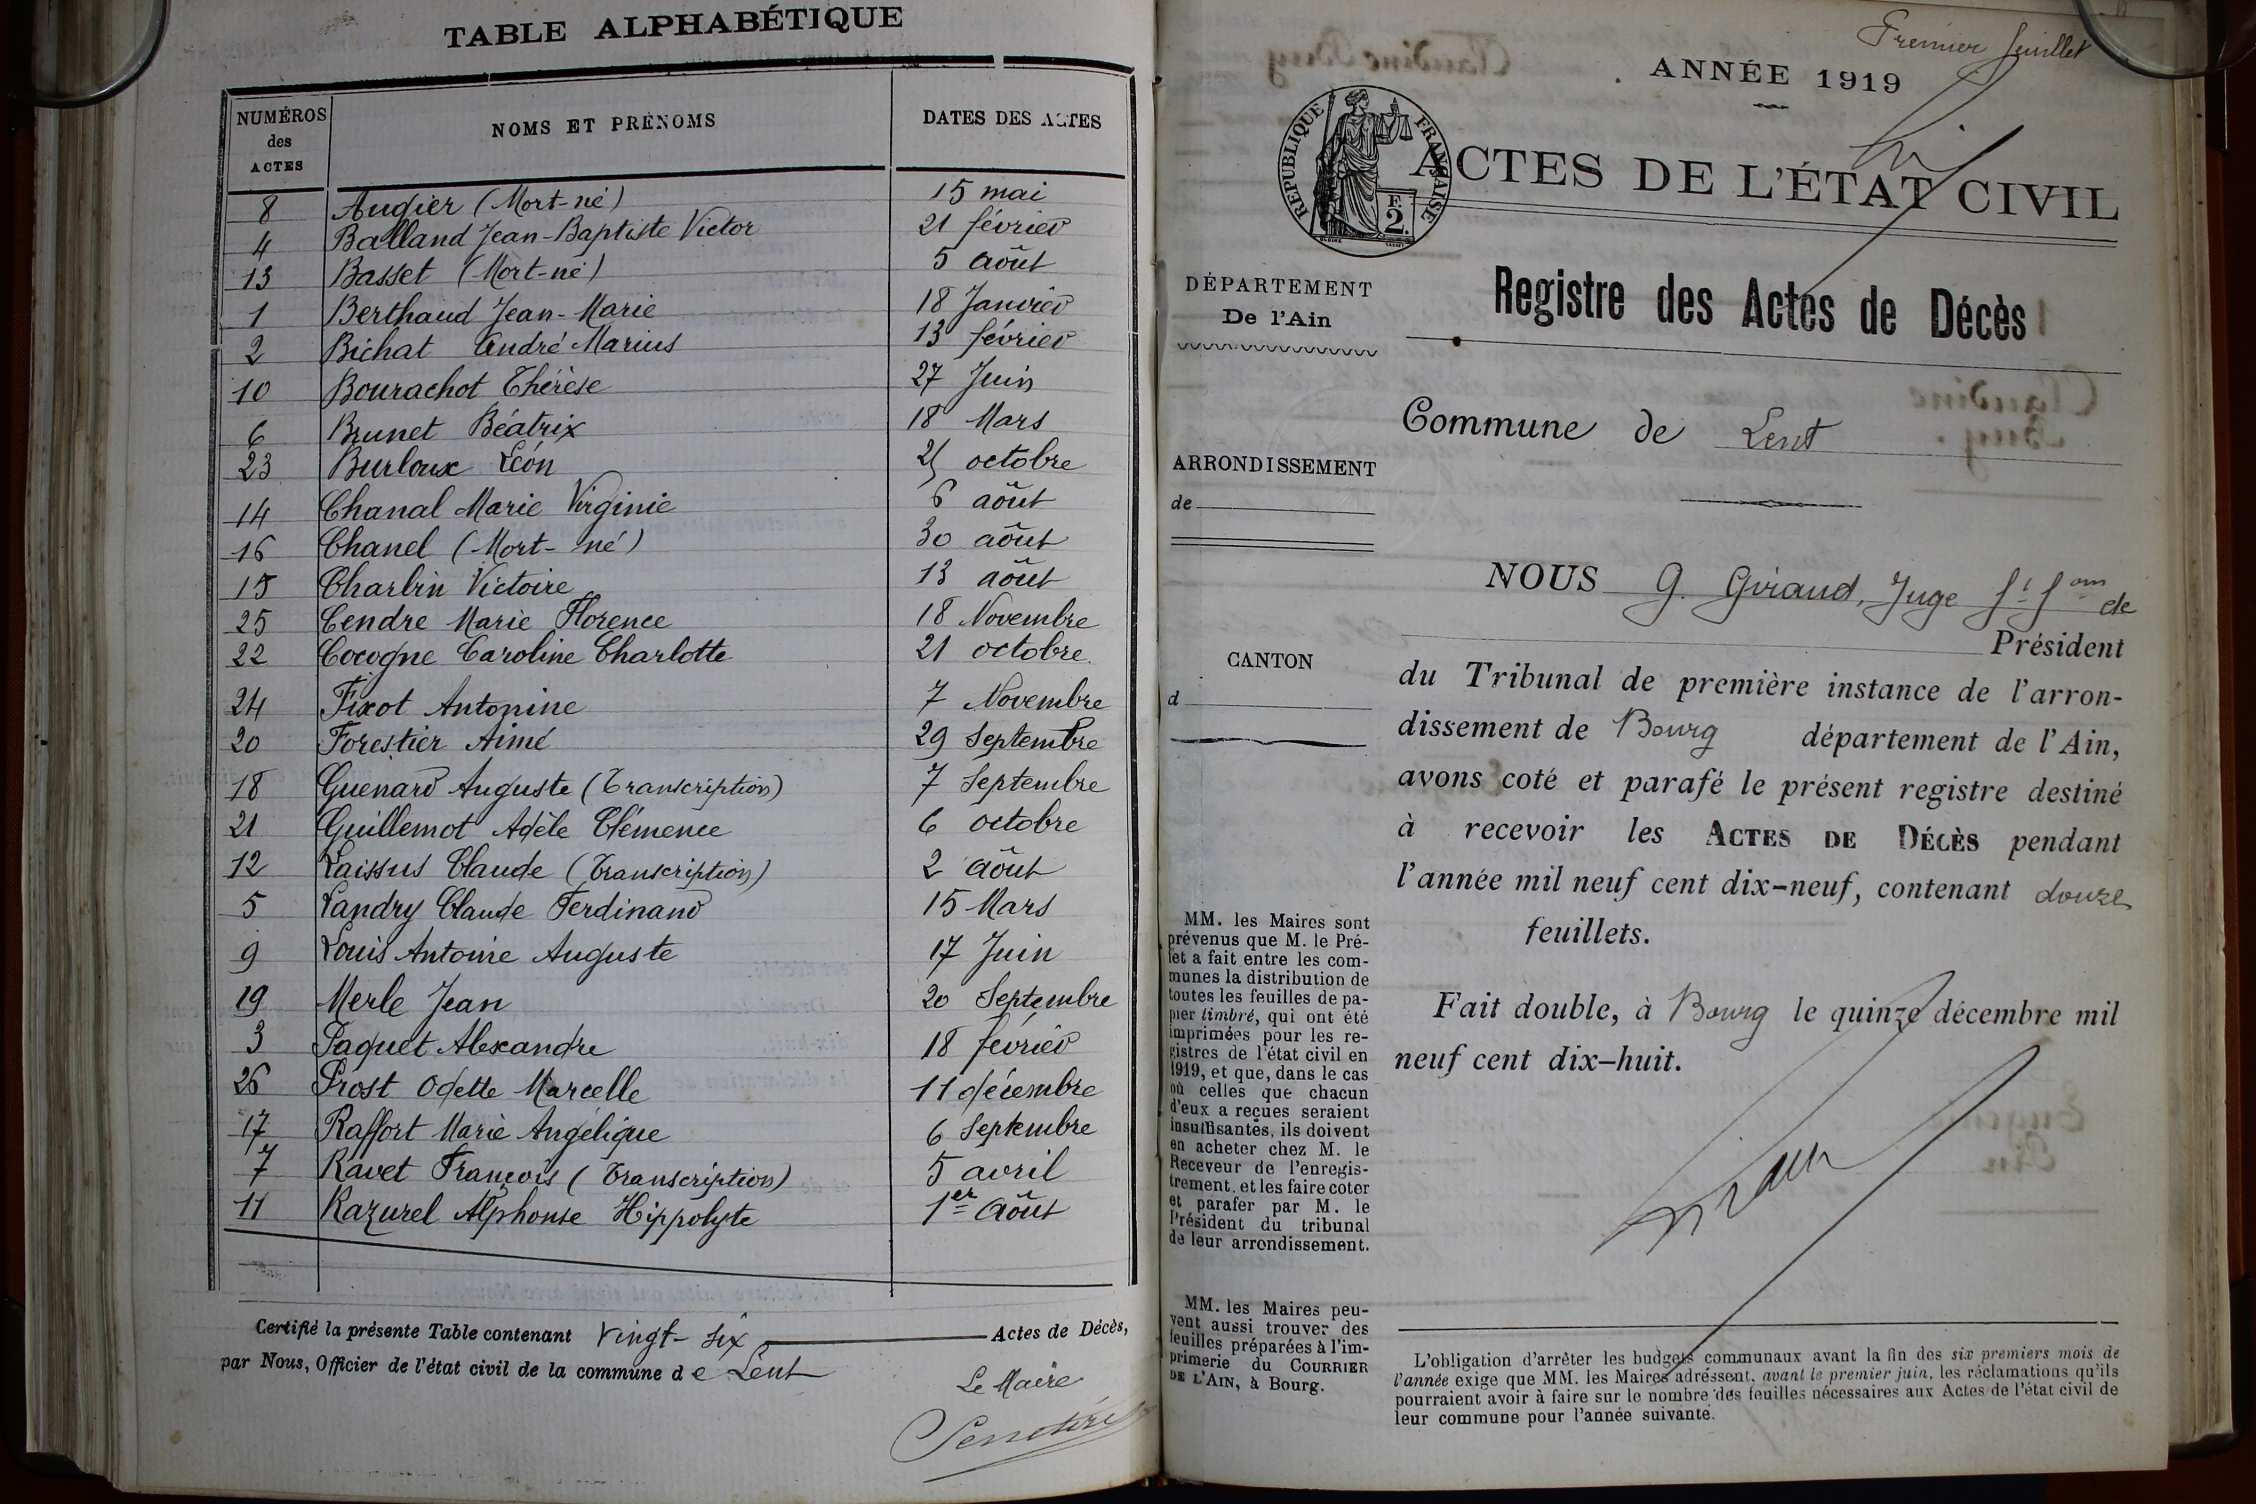 TABLE ALPHABÉTIQUE
NUMÉROS des ACTES NOMS ET PRÉNOMS DATES DES ACTES
8 Augier (Mort-né) 15 mai
4 Balland Jean-Baptiste Victor 21 février
13 Basset (Mort-né) 5 août
1 Berthaud Jean-Marie 18 Janvier
2 Bichat André Marius 13 février
10 Bourachot Thérèse 27 Juin
6 Brunet Béatrix 18 Mars
23 Burloux Léon 25 octobre
14 Chanal Marie Virginie 6 août
16 Chanel (Mort-né) 30 août
15 Charbin Victoire 13 août
25 Cendre Marie Florence 18 Novembre
22 Cocogne Caroline Charlotte 21 octobre
24 Fixot Antonine 7 Novembre
20 Forestier Aimé 29 Septembre
18 Guenard Auguste (Transcription) 7 Septembre
21 Guillemot Adèle Clémence 6 octobre
12 Laissus Claude (Transcription) 2 août
5 Landry Claude Ferdinand 15 Mars
9 Louis Antoine Auguste 17 Juin
19 Merle Jean 20 Septembre
3 Paquet Alexandre 18 février
26 Prost Odette Marcelle 11 décembre
17 Raffort Marie Angélique 6 Septembre
7 Ravet François (Transcription) 5 avril
11 Razurel Alphonse Hippolyte 1er Août
Certifié la présente Table contenant Vingt-six Actes de Décès,
par Nous, Officier de l'état civil de la commune de Lent
Le Maire
Premier feuillet
ANNÉE 1919
RÉPUBLIQUE FRANÇAISE
F. 2.
ACTES DE L'ÉTAT CIVIL
DÉPARTEMENT
De l'Ain
Registre des Actes de Décès
Commune de Lent
ARRONDISSEMENT
de
CANTON
d
NOUS G. Giraud, Juge de
Président
du Tribunal de première instance de l'arron-
dissement de Bourg département de l'Ain,
avons coté et parafé le présent registre destiné
à recevoir les ACTES DE DÉCÈS pendant
l'année mil neuf cent dix-neuf, contenant douze
feuillets.
Fait double, à Bourg le quinze décembre mil
neuf cent dix-huit.
MM. les Maires sont
prévenus que M. le Pré-
fet a fait entre les com-
munes la distribution de
toutes les feuilles de pa-
pier timbré, qui ont été
imprimées pour les re-
gistres de l'état civil en
1919, et que, dans le cas
où celles que chacun
d'eux a reçues seraient
insuffisantes, ils doivent
en acheter chez M. le
Receveur de l'enregis-
trement, et les faire coter
et parafer par M. le
Président du tribunal
de leur arrondissement.
MM. les Maires peu-
vent aussi trouver des
feuilles préparées à l'im-
primerie du COURRIER
DE L'AIN, à Bourg.
L'obligation d'arrêter les budgets communaux avant la fin des six premiers mois de
l'année exige que MM. les Maires adressent, avant le premier juin, les réclamations qu'ils
pourraient avoir à faire sur le nombre des feuilles nécessaires aux Actes de l'état civil de
leur commune pour l'année suivante.